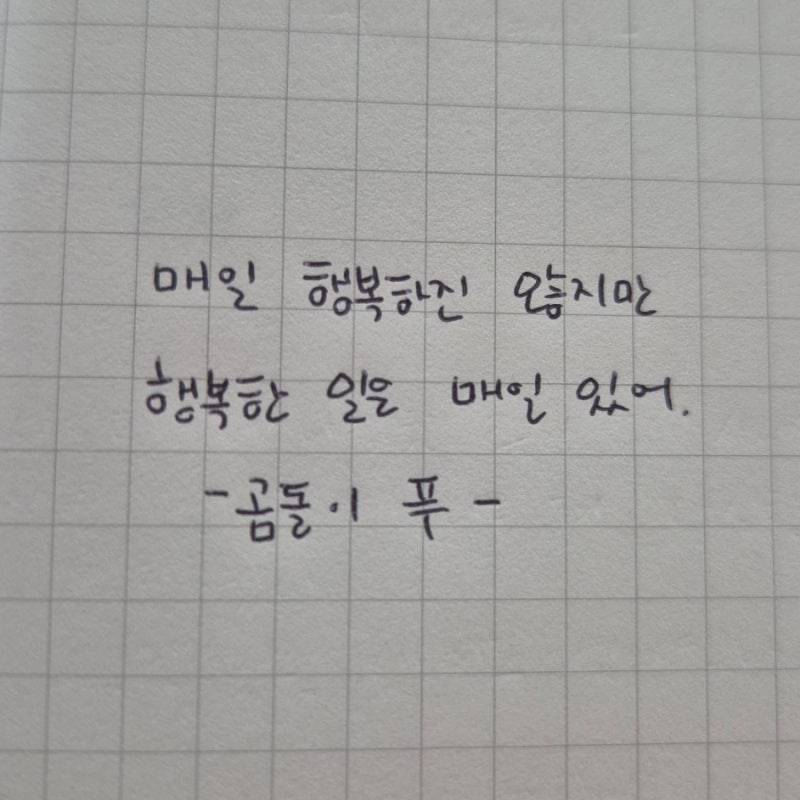 매일 행복하진 않지만
행복한 일은 매일 있어.
-곰돌이 푸-